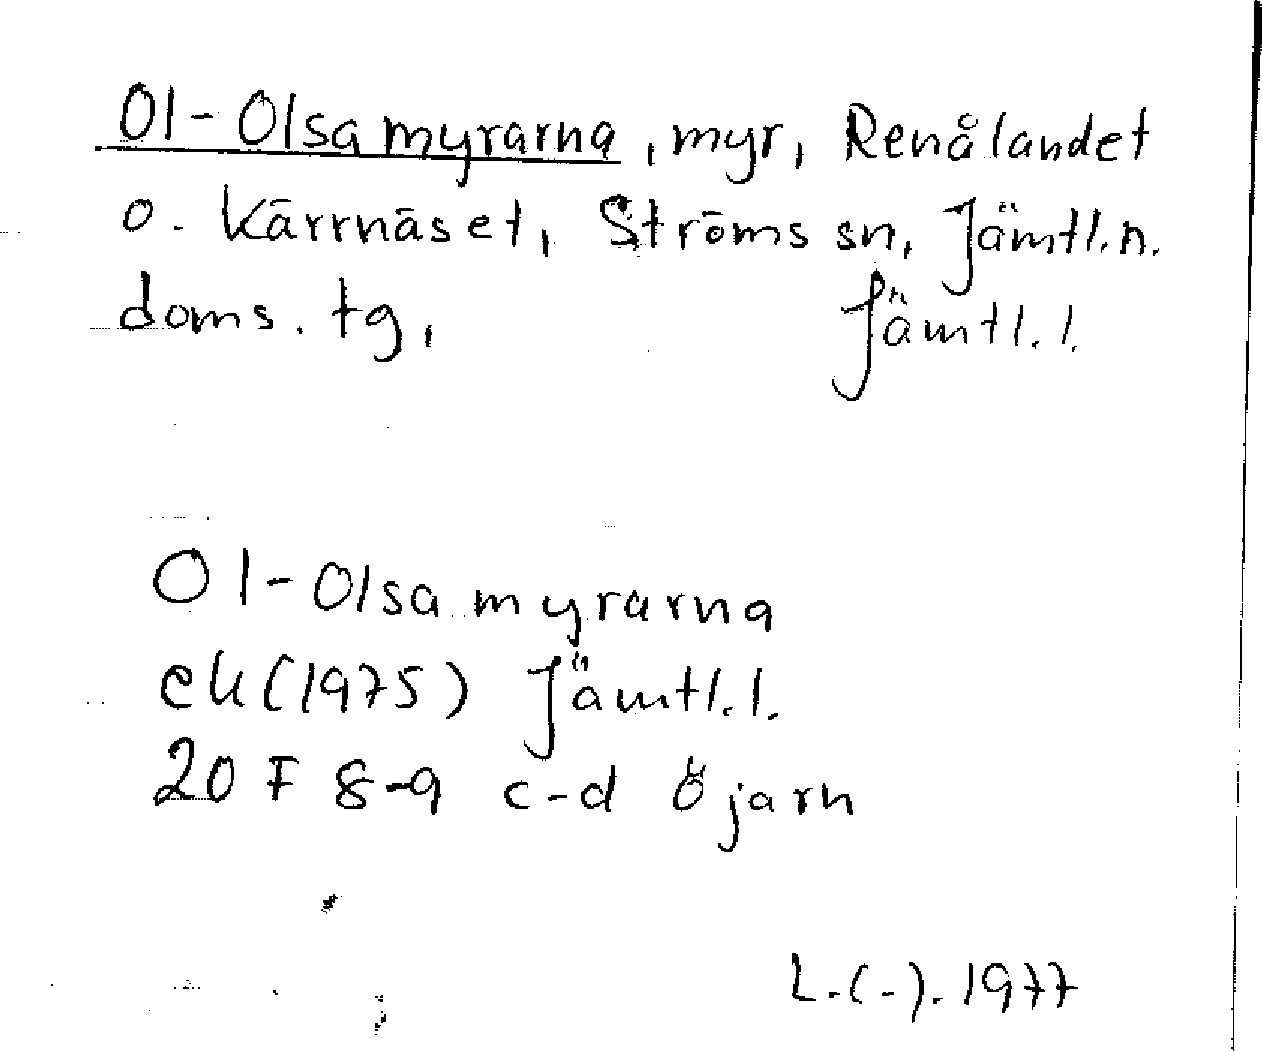 Ol-Olsamyrarna, myr, Renålandet
o. Kärrnäset, Ströms sn, Jämtl. n.
doms. tg, Jämtl. l.
Ol-Olsamyrarna
ek (1975) Jämtl. l.
20 F 8-9 c-d Öjarn
L.(-). 1977